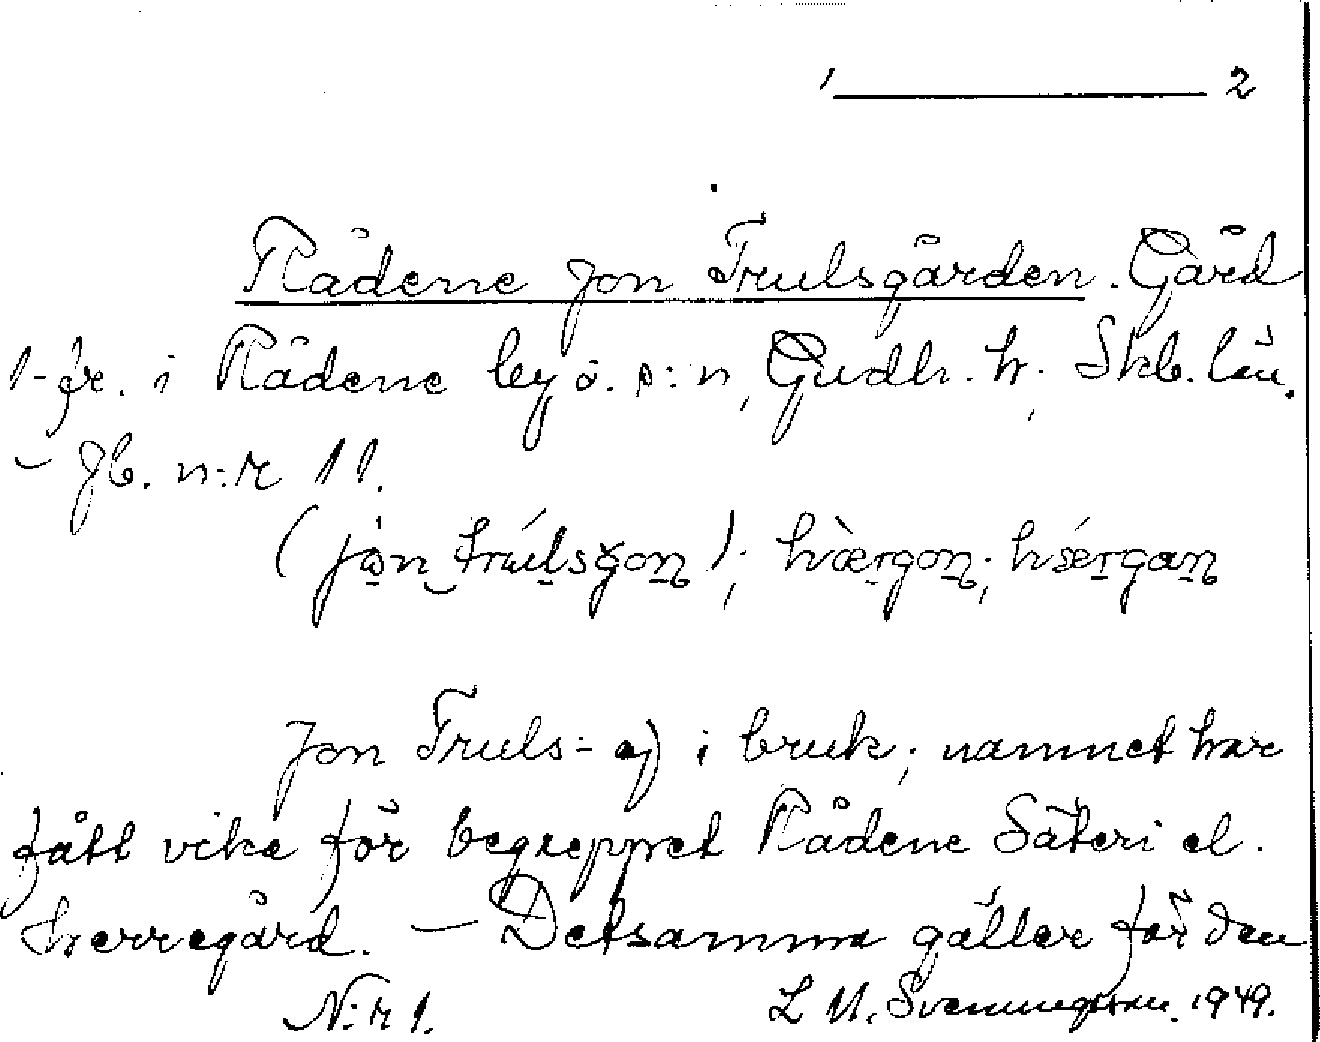 1 2
Rådene Jon Trulsgården. Gård
1-fr. i Rådene by o. s:n, Gudh. h., Skb. län.
- Jb. n:r 11.
Jon Truls- ej i bruk; namnet har
fått vika för begreppet Rådene Säteri el.
herregård. - Detsamma gäller för den
N:r 1. L M. Svenungsson. 1949.